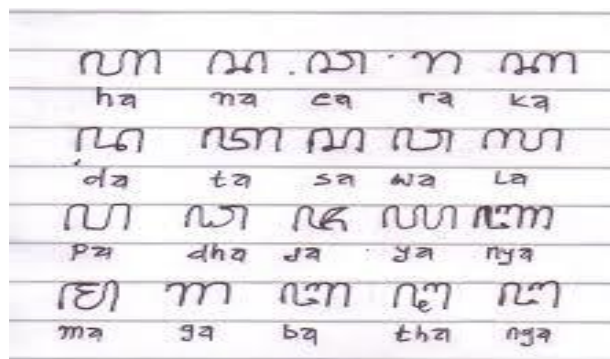 ꦲ ꦤ ꦕ ꦫ ꦏ
ha na ca ra ka
ꦢ ꦠ ꦱ ꦮ ꦭ
da ta sa wa La
ꦥ ꦝ ꦗ ꦪ ꦚ
Pa dha Ja ya nya
ꦩ ꦒ ꦧ ꦛ ꦔ
ma ga ba tha nga